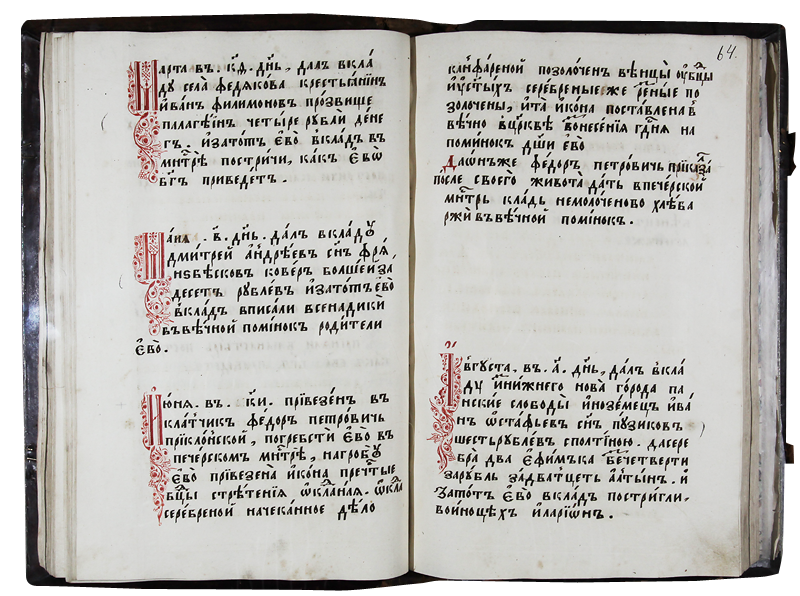 Марта въ. к҃ѳ. д҃нь, далъ вкла
ду села федякова крестьянинъ
иванъ филимоновъ прозвище
палагѣинъ четыре рубли дене
гъ. изатотъ ево вкладъ въ
мнтрѣ постричи, какъ евѡ
бг҃ъ приведетъ.
Маия .в҃. днь. далъ вкладу
дмитрей андрѣевъ сн҃ъ фря
коверъ болшеи за
десетъ рублевъ изатотъ ево
вкладъ вписали всенадики
въвѣчной поминокъ родители
ево.
Июня. въ. к҃и. привезенъ въ
клатчикъ федоръ петровичь
приклонской, погребсти ево въ
печерскомъ мнтрѣ, нагробу
ево привезена икона пречтые
бцы стрѣтения ѡкланая. ѡкла
серебреной начеканное дѣло
64.
канфареной позолоченъ вѣнцы убцы
иустыхъ серебреные же рѣзные по
золочены, ита икона поставлена в
вѣчно вцрквѣ вознесения гдня на
поминок дши ево
Даонъже федоръ петровичь приказа
после своего живота дать впечерской
мнтрь кладь немолоченово хлѣба
ржи въвѣчной поминокъ.
Августа. въ. а҃. днь, далъ вкла
ду инижнего нова города па
нские слободы иноземец ива
нъ ѡстафьевъ сн҃ъ пузиков
шестьрублев сполтиною. дасере
бра два ефимъка бечетверти
зарубль задватцеть алтын. и
затотъ ево вкладъ постригли.
воиноцѣхъ иларионъ.